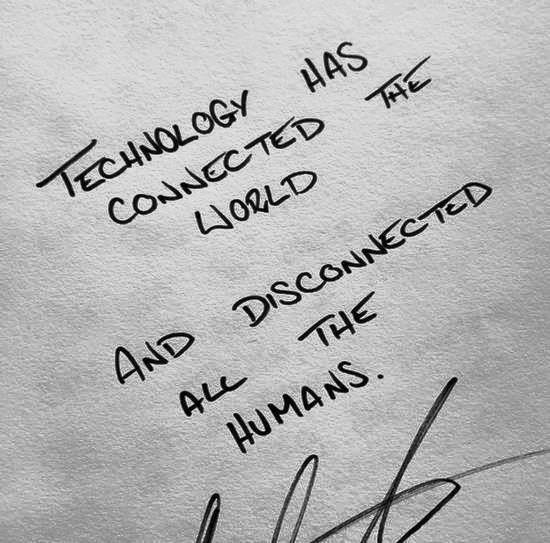 TECHNOLOGY HAS
CONNECTED THE
WORLD
AND DISCONNECTED
ALL THE
HUMANS.